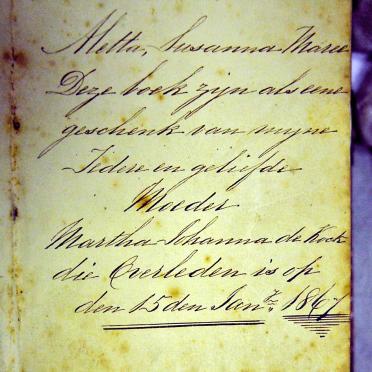 Aletta, Susanna Maree
Deze boek zijn als eene
geschenk van myne
Tedere en geliefde
Moeder
Martha Johanna de Kock
die Overleden is op
den 15den Jan^y. 1867